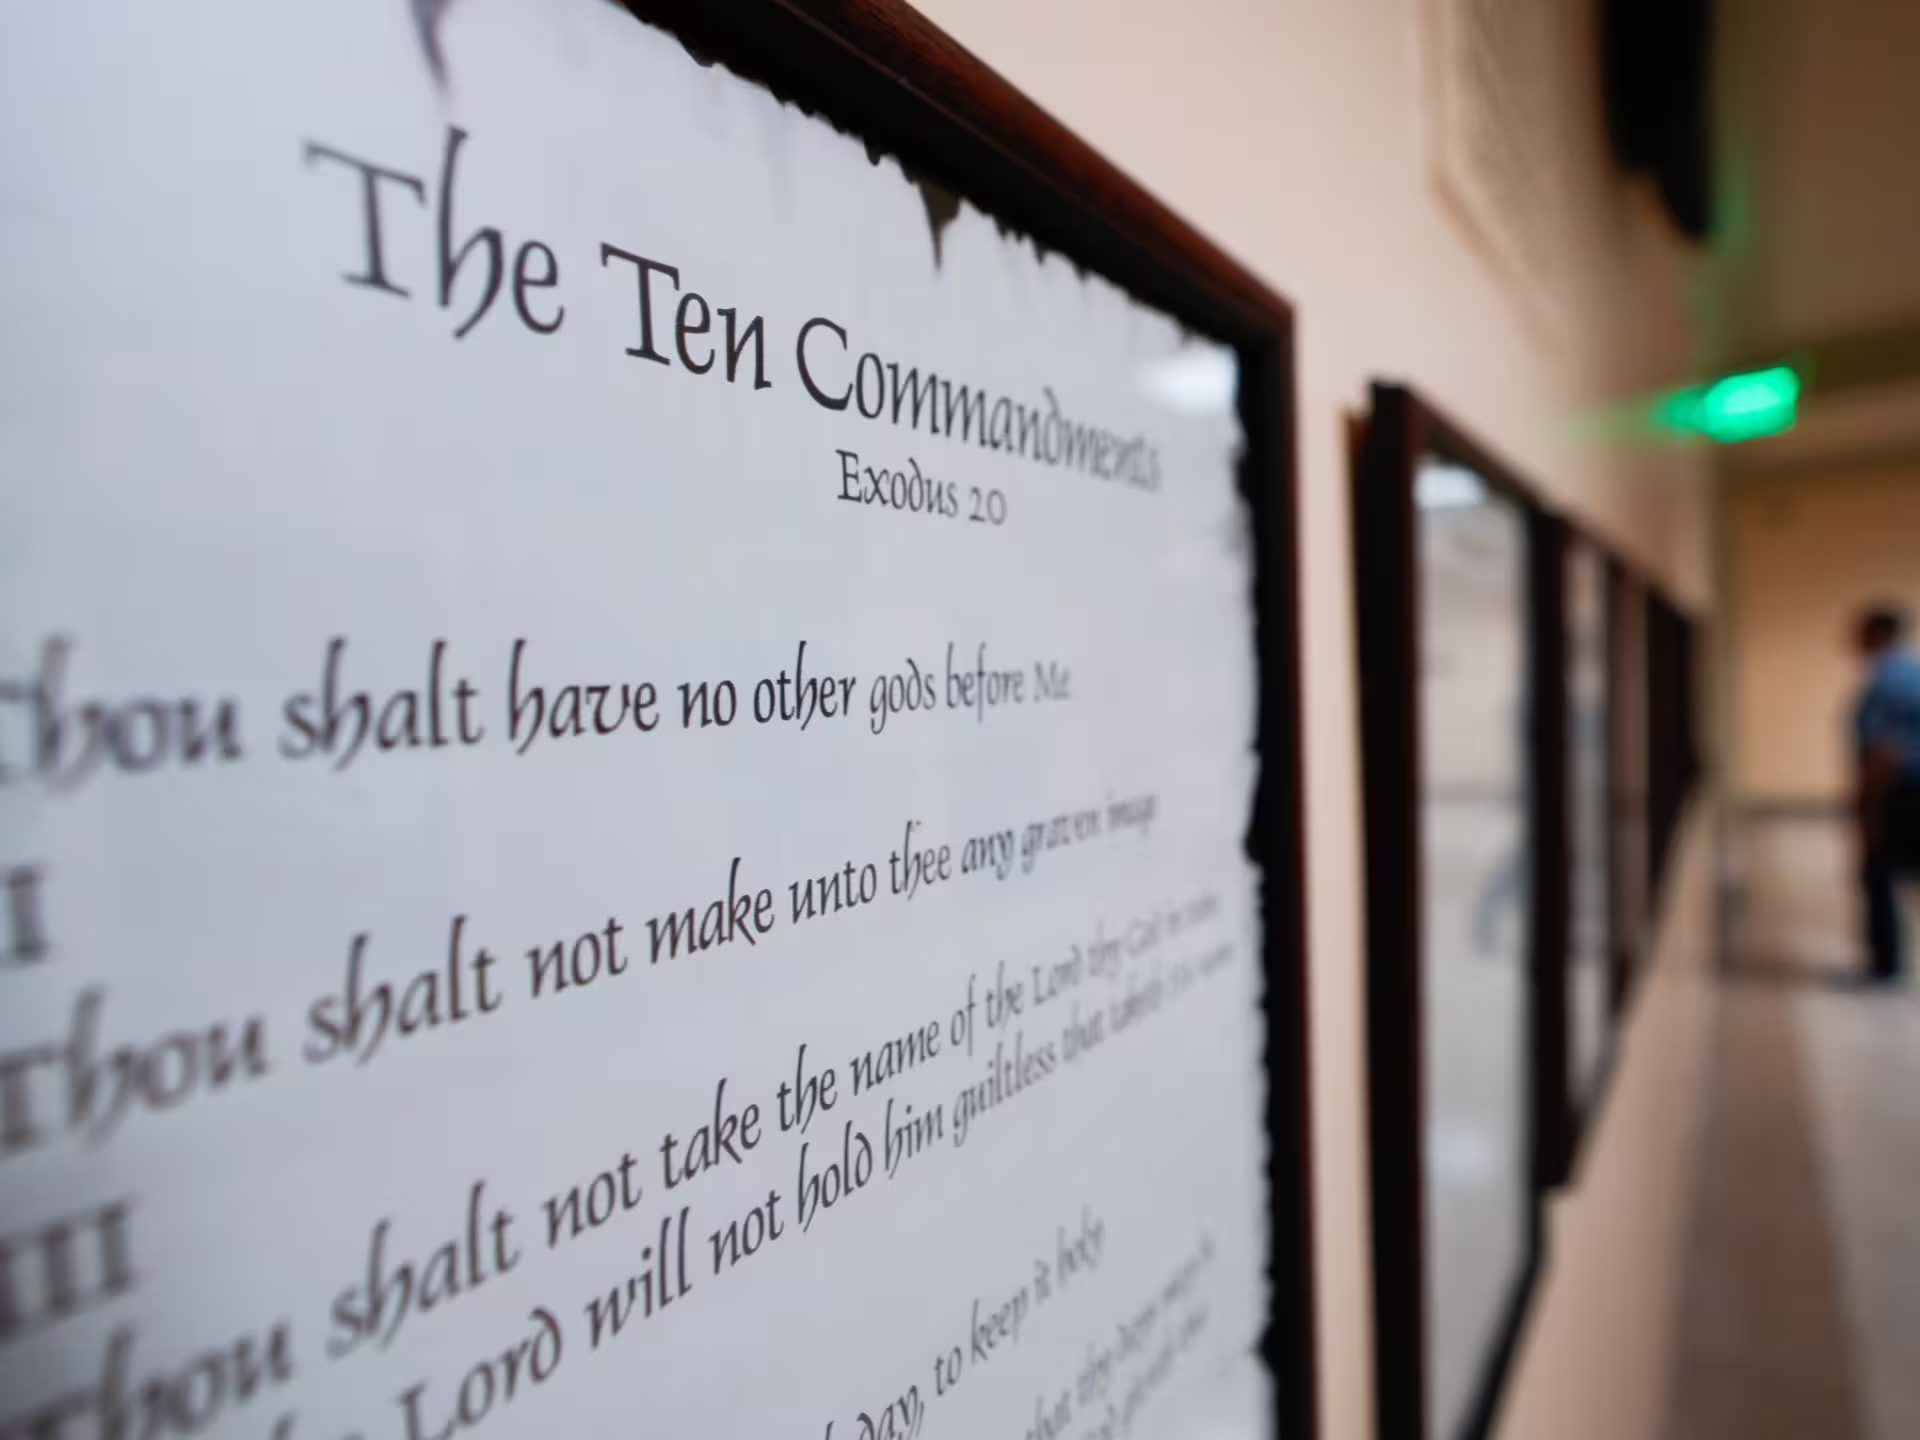 The Ten Commandments
Exodus 20
Thou shalt have no other gods before Me
II
Thou shalt not make unto thee any graven image
III
Thou shalt not take the name of the Lord thy God in vain
Lord will not hold him guiltless that taketh His name
day, to keep it holy
that thy days